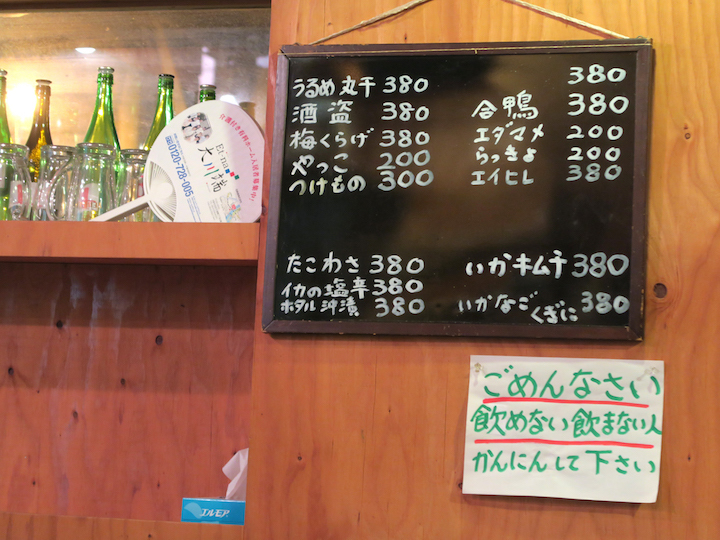 うるめ丸干 380
酒盗 380
梅くらげ 380
やっこ 200
つけもの 300
たこわさ 380
イカの塩辛 380
ホタル沖漬 380
380
合鴨 380
エダマメ 200
らっきょ 200
エイヒレ 380
いかキムチ 380
いかなごくぎに 380
ごめんなさい
飲めない飲まない人
かんにんして下さい
介護付き有料ホーム入居者募集中!
Ei-na
大川端
0120-728-005
エルモア